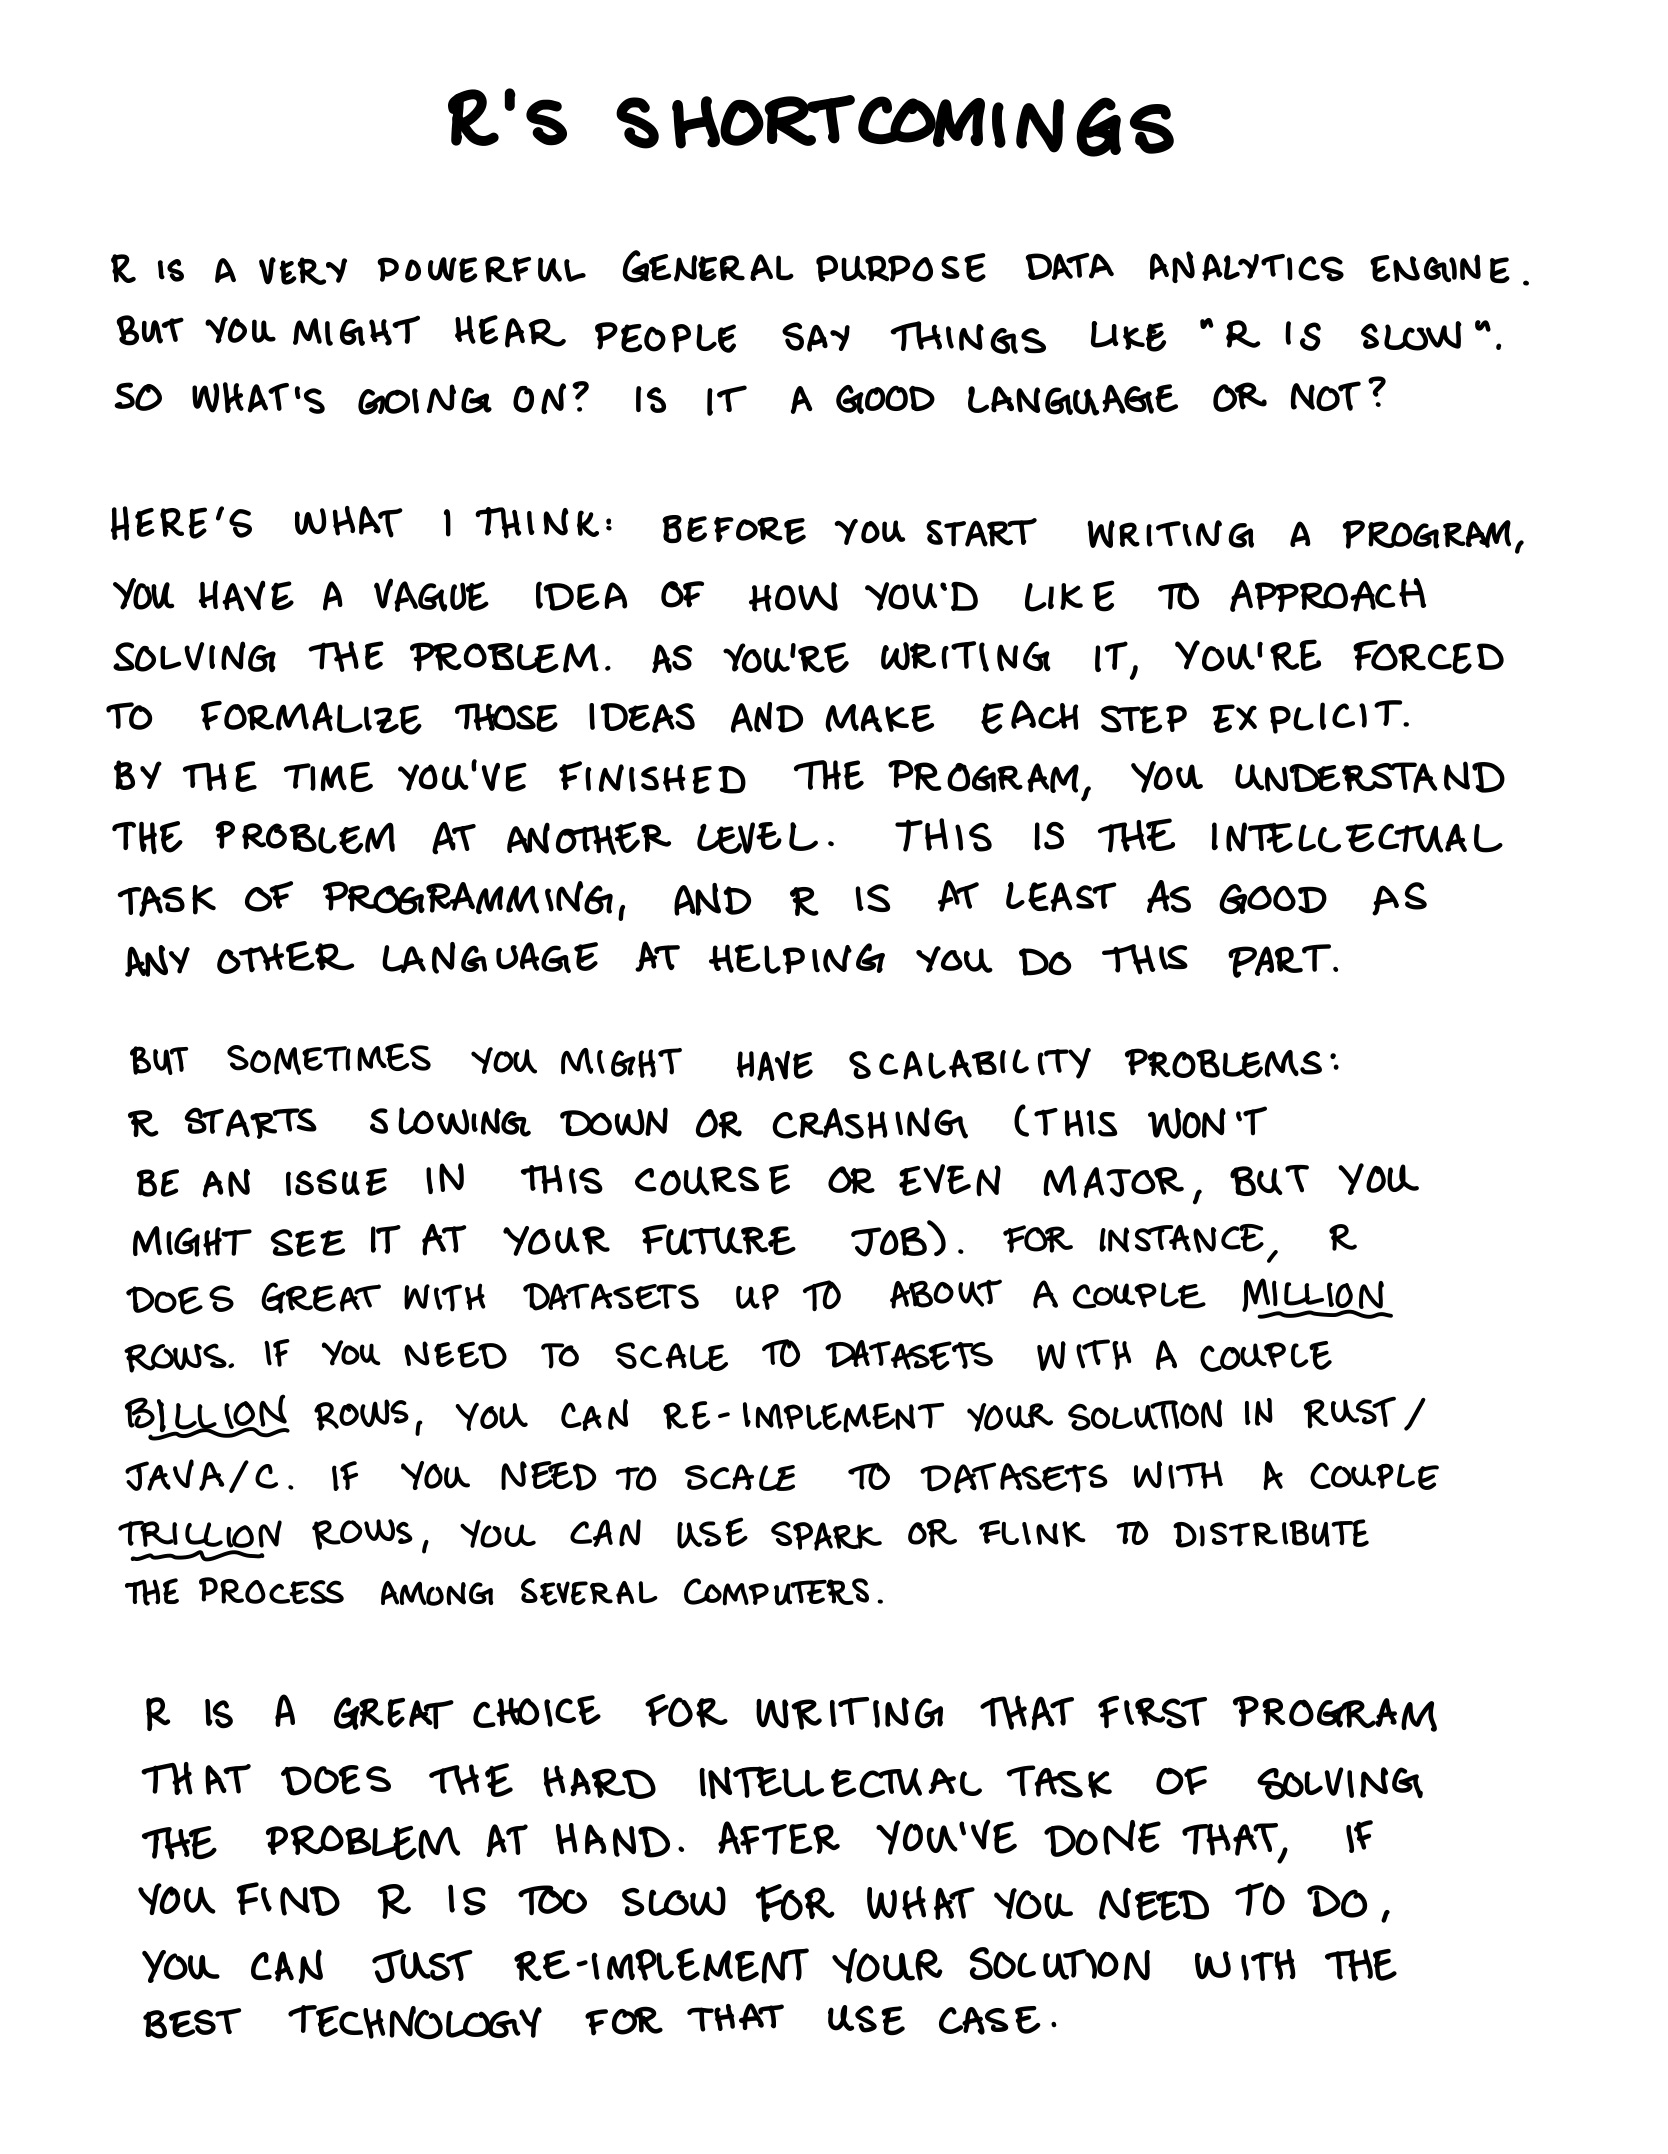 R'S SHORTCOMINGS
R IS A VERY POWERFUL GENERAL PURPOSE DATA ANALYTICS ENGINE.
BUT YOU MIGHT HEAR PEOPLE SAY THINGS LIKE "R IS SLOW".
SO WHAT'S GOING ON? IS IT A GOOD LANGUAGE OR NOT?
HERE'S WHAT I THINK: BEFORE YOU START WRITING A PROGRAM,
YOU HAVE A VAGUE IDEA OF HOW YOU'D LIKE TO APPROACH
SOLVING THE PROBLEM. AS YOU'RE WRITING IT, YOU'RE FORCED
TO FORMALIZE THOSE IDEAS AND MAKE EACH STEP EXPLICIT.
BY THE TIME YOU'VE FINISHED THE PROGRAM, YOU UNDERSTAND
THE PROBLEM AT ANOTHER LEVEL. THIS IS THE INTELLECTUAL
TASK OF PROGRAMMING, AND R IS AT LEAST AS GOOD AS
ANY OTHER LANGUAGE AT HELPING YOU DO THIS PART.
BUT SOMETIMES YOU MIGHT HAVE SCALABILITY PROBLEMS:
R STARTS SLOWING DOWN OR CRASHING (THIS WON'T
BE AN ISSUE IN THIS COURSE OR EVEN MAJOR, BUT YOU
MIGHT SEE IT AT YOUR FUTURE JOB). FOR INSTANCE, R
DOES GREAT WITH DATASETS UP TO ABOUT A COUPLE MILLION
ROWS. IF YOU NEED TO SCALE TO DATASETS WITH A COUPLE
BILLION ROWS, YOU CAN RE-IMPLEMENT YOUR SOLUTION IN RUST/
JAVA/C. IF YOU NEED TO SCALE TO DATASETS WITH A COUPLE
TRILLION ROWS, YOU CAN USE SPARK OR FLINK TO DISTRIBUTE
THE PROCESS AMONG SEVERAL COMPUTERS.
R IS A GREAT CHOICE FOR WRITING THAT FIRST PROGRAM
THAT DOES THE HARD INTELLECTUAL TASK OF SOLVING
THE PROBLEM AT HAND. AFTER YOU'VE DONE THAT, IF
YOU FIND R IS TOO SLOW FOR WHAT YOU NEED TO DO,
YOU CAN JUST RE-IMPLEMENT YOUR SOLUTION WITH THE
BEST TECHNOLOGY FOR THAT USE CASE.